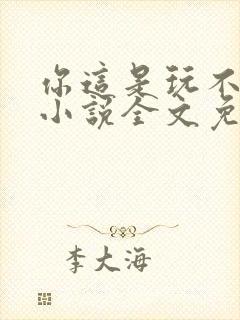 你這是玩不
小說全文免
李大海